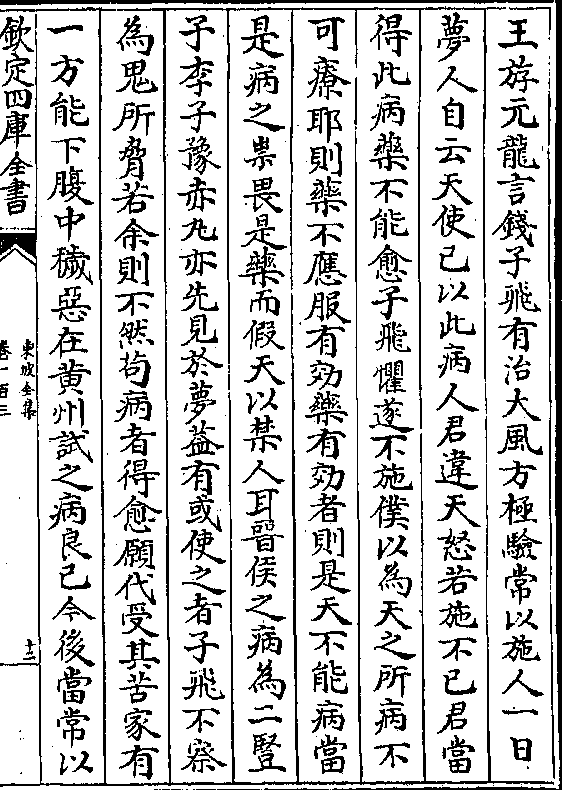 王斿元龍言錢子飛有治大風方極驗常以施人一日
夢人自云天使已以此病人君違天怒若施不已君當
得此病藥不能愈子飛懼遂不施僕以為天之所病不
可療耶則藥不應服有効藥有効者則是天不能病當
是病之祟畏是藥而假天以禁人耳晉侯之病為二豎
子李子豫赤丸亦先見於夢葢有或使之者子飛不察
為鬼所脅若余則不然茍病者得愈願代受其苦家有
一方能下腹中穢惡在黄州試之病良已今後當常以
欽定四庫全書
東坡全集
卷一百三
十二